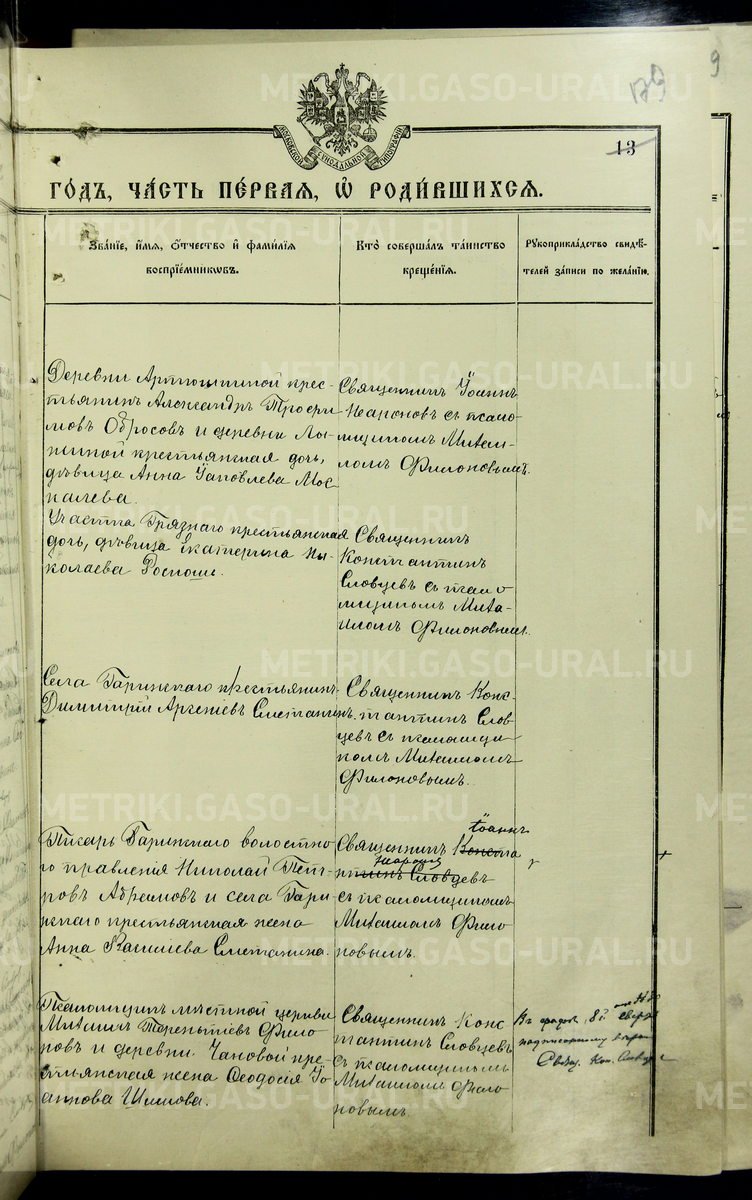 129
9
13
МОСКОВСКОЙ СѴНОДАЛЬНОЙ ТИПОГРАФІИ
ГОДЪ, ЧАСТЬ ПЕРВАЯ, Ѡ РОДИВШИХСЯ.
Званіе, имя, отчество и фамилія воспріемниковъ.
Кто совершалъ таинство крещенія.
Рукоприкладство свидѣтелей записи по желанію.
Деревни Артюшиной крес-
тьянинъ Александръ Трофи
мовъ Обросовъ и деревни
крестьянская дочь,
дѣвица Анна Іаковлева Мос
калева.
Священникъ Іоаннъ
съ псало
мщикомъ Михаи-
ломъ Филоновымъ.
Участка Грязнаго крестьянская
дочь, дѣвица Екатерина Ни
колаева
Священникъ
Константинъ
Словцевъ съ псало
мщикомъ Миха-
иломъ Филоновымъ.
Села Гаринскаго крестьянинъ
Димитрій Сметанинъ.
Священникъ Конс-
тантинъ Слов
цевъ съ псаломщи
комъ Михаиломъ
Филоновымъ.
Писарь Гаринскаго волостно
го правленія Николай Пет
ровъ Абрамовъ и села Гари
нскаго крестьянская жена
Анна Васильева Сметанина.
Іоаннъ
Священникъ Конста
нтинъ Словцевъ
съ псаломщикомъ
Михаиломъ Фило
новымъ.
Псаломщикъ мѣстной церкви
Михаилъ Терентьевъ Фило
новъ и деревни Чановой кре
стьянская жена Ѳеодосія Іо
аннова
Священникъ Конс
тантинъ Словцевъ
съ псаломщикомъ
Михаиломъ Фило
новымъ
Въ графѣ 8й сверху
Свящ. Кон. Словцевъ
METRIKI.GASO-URAL.RU